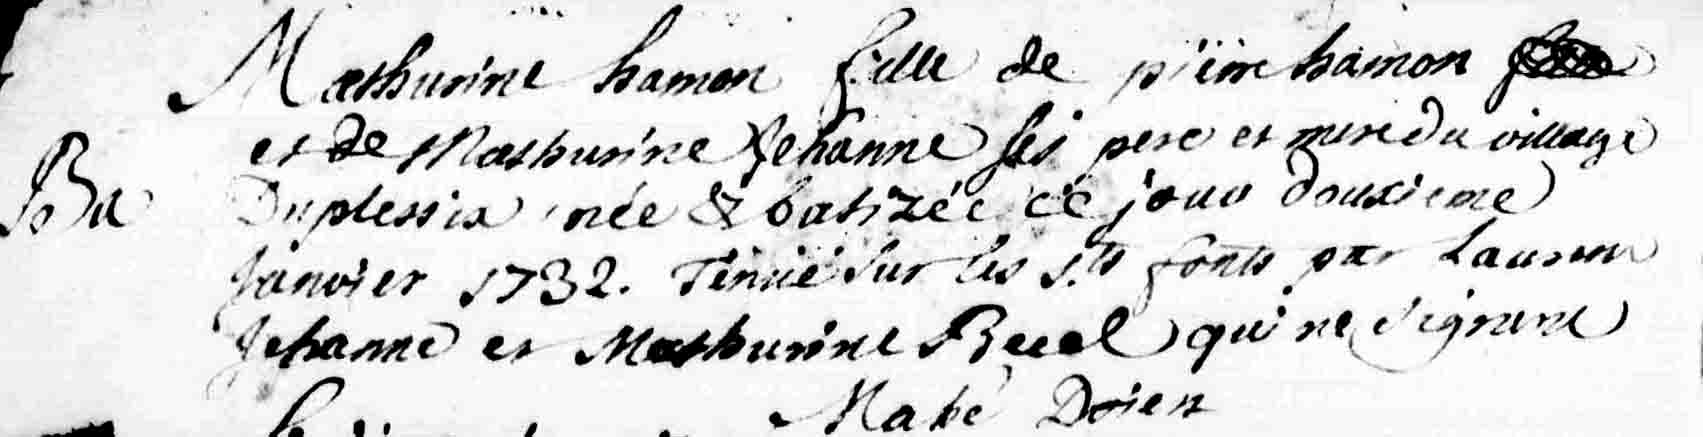 Mathurine hamon fille de pierre hamon
et de Mathurine Jehanne ses pere et mere du village
Ba Duplessix née & batizée ce jour deuxieme
Janvier 1732. Tenue sur les s.ts fonts par Laurent
Jehanne et Mathurine Becel qui ne signent
Mahé Doien